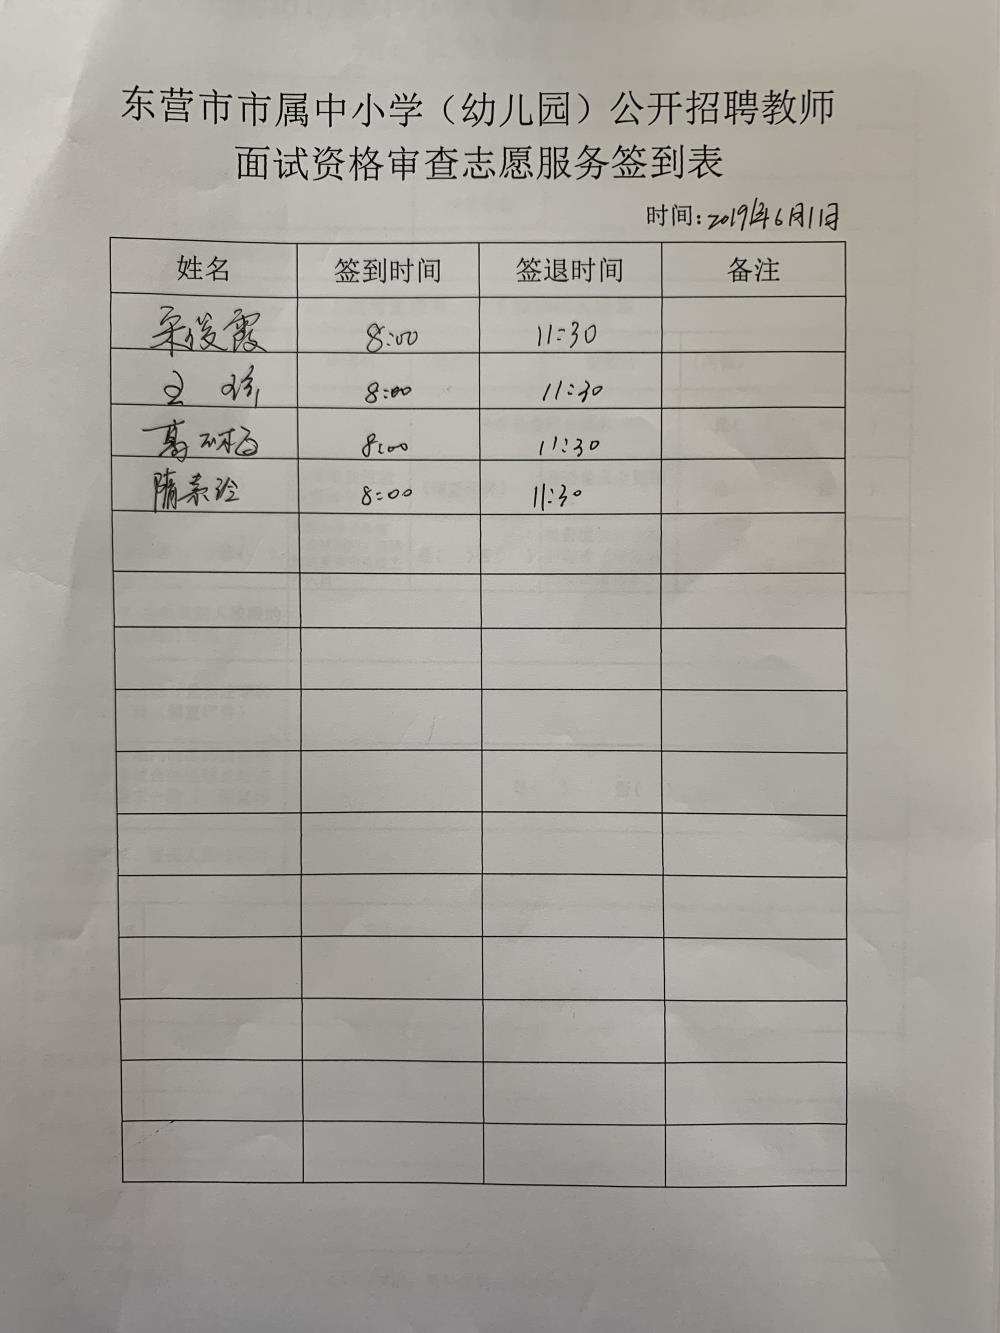 东营市市属中小学（幼儿园）公开招聘教师
面试资格审查志愿服务签到表
时间：2019年6月11日
姓名 签到时间 签退时间 备注
宋俊霞 8:00 11:30
王 珍 8:00 11:30
8:00 11:30
隋素玲 8:00 11:30